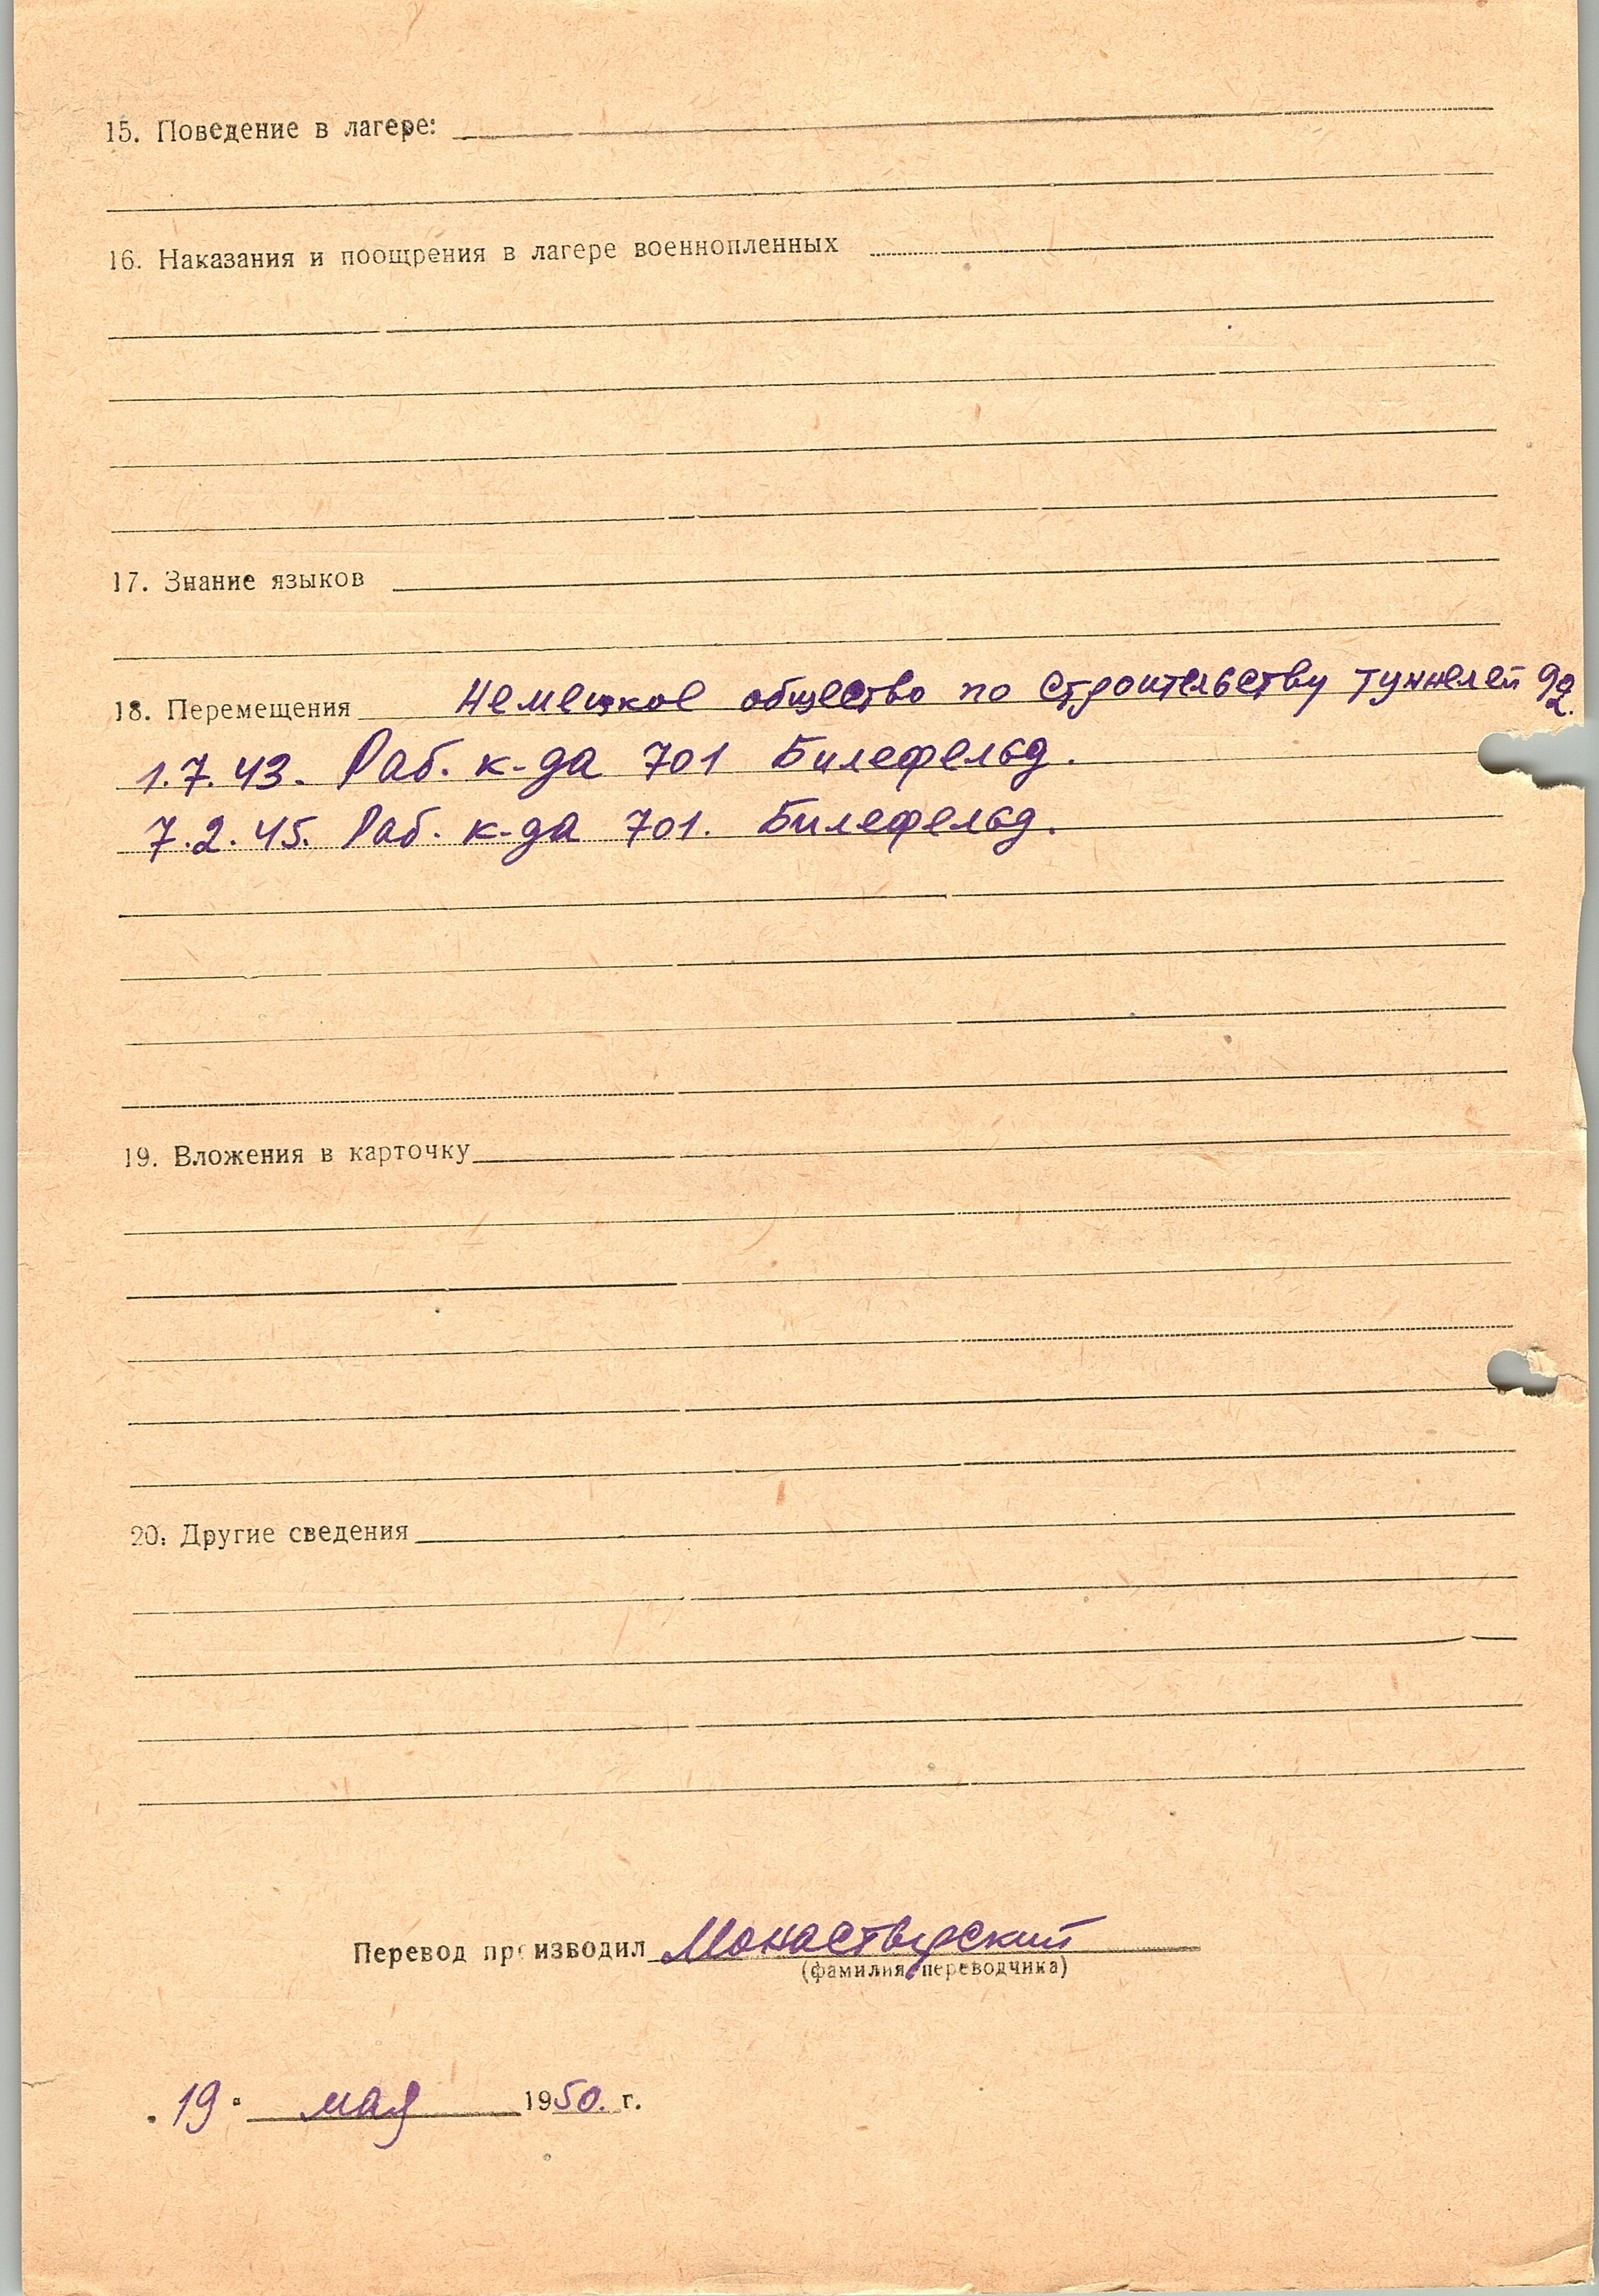 15. Поведение в лагере:
16. Наказания и поощрения в лагере военнопленных
17. Знание языков
18. Перемещения Немецкое общество по строительству туннелей 92.
1.7.43. Раб. к-да 701 Билефельд.
7.2.45. Раб. к-да 701. Билефельд.
19. Вложения в карточку
20. Другие сведения
Перевод производил Монастырский
(фамилия переводчика)
"19" мая 1950. г.